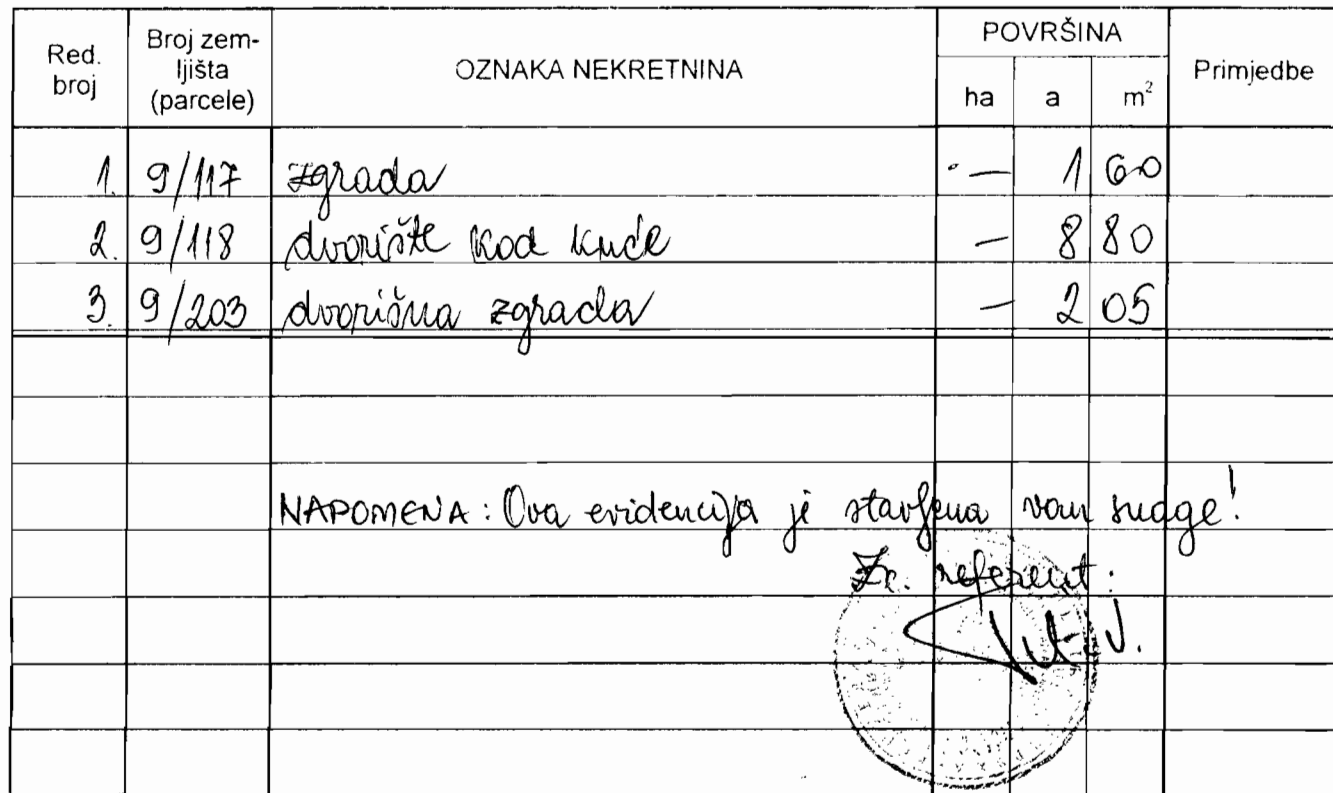 Red. broj | Broj zem-ljišta (parcele) | OZNAKA NEKRETNINA | POVRŠINA | Primjedbe
ha | a | m²
1. | 9/117 | zgrada | — | 1 | 60
2. | 9/118 | dvorište kod kuće | — | 8 | 80
3. | 9/203 | dvorišna zgrada | — | 2 | 05
NAPOMENA: Ova evidencija je stavljena van snage!
Zk. referent: